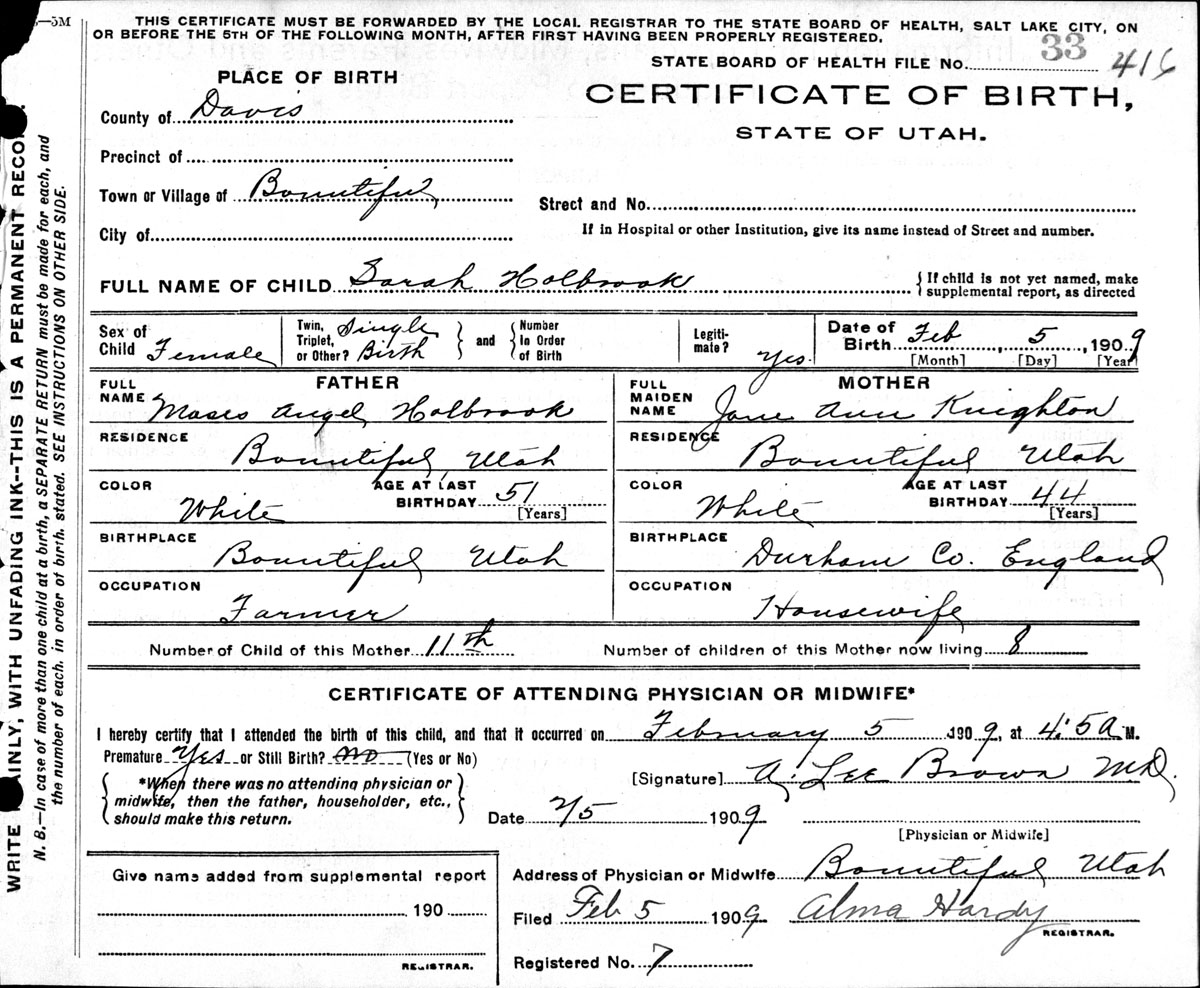 5—5M
THIS CERTIFICATE MUST BE FORWARDED BY THE LOCAL REGISTRAR TO THE STATE BOARD OF HEALTH, SALT LAKE CITY, ON
OR BEFORE THE 5TH OF THE FOLLOWING MONTH, AFTER FIRST HAVING BEEN PROPERLY REGISTERED.
STATE BOARD OF HEALTH FILE NO. 33 416
PLACE OF BIRTH
CERTIFICATE OF BIRTH,
STATE OF UTAH.
County of Davis
Precinct of
Town or Village of Bountiful
Street and No.
City of
If in Hospital or other Institution, give its name instead of Street and number.
FULL NAME OF CHILD Sarah Holbrook {If child is not yet named, make
supplemental report, as directed
Sex of Child Female
Twin, Triplet, or Other? Single Birth } and { Number In Order of Birth
Legiti-mate? Yes.
Date of Birth Feb 5, 1909
[Month] [Day] [Year]
FATHER
FULL NAME Moses Angel Holbrook
RESIDENCE Bountiful, Utah
COLOR White AGE AT LAST BIRTHDAY 51
[Years]
BIRTHPLACE Bountiful Utah
OCCUPATION Farmer
MOTHER
FULL MAIDEN NAME Jane Ann Knighton
RESIDENCE Bountiful Utah
COLOR White AGE AT LAST BIRTHDAY 44
[Years]
BIRTHPLACE Durham Co. England
OCCUPATION Housewife
Number of Child of this Mother 11th Number of children of this Mother now living 8
CERTIFICATE OF ATTENDING PHYSICIAN OR MIDWIFE*
I hereby certify that I attended the birth of this child, and that it occurred on February 5 1909, at 4:5 A M.
Premature Yes or Still Birth? No (Yes or No)
*When there was no attending physician or
midwife, then the father, householder, etc.,
should make this return.
[Signature] A. Lee Brown M.D.
Date 2/5 1909
[Physician or Midwife]
Give name added from supplemental report
190
REGISTRAR.
Address of Physician or Midwife Bountiful Utah
Filed Feb 5 1909 Alma Hardy
REGISTRAR.
Registered No. 7
WRITE PLAINLY, WITH UNFADING INK--THIS IS A PERMANENT RECO
N. B.—In case of more than one child at a birth, a SEPARATE RETURN must be made for each, and
the number of each. in order of birth. stated. SEE INSTRUCTIONS ON OTHER SIDE.